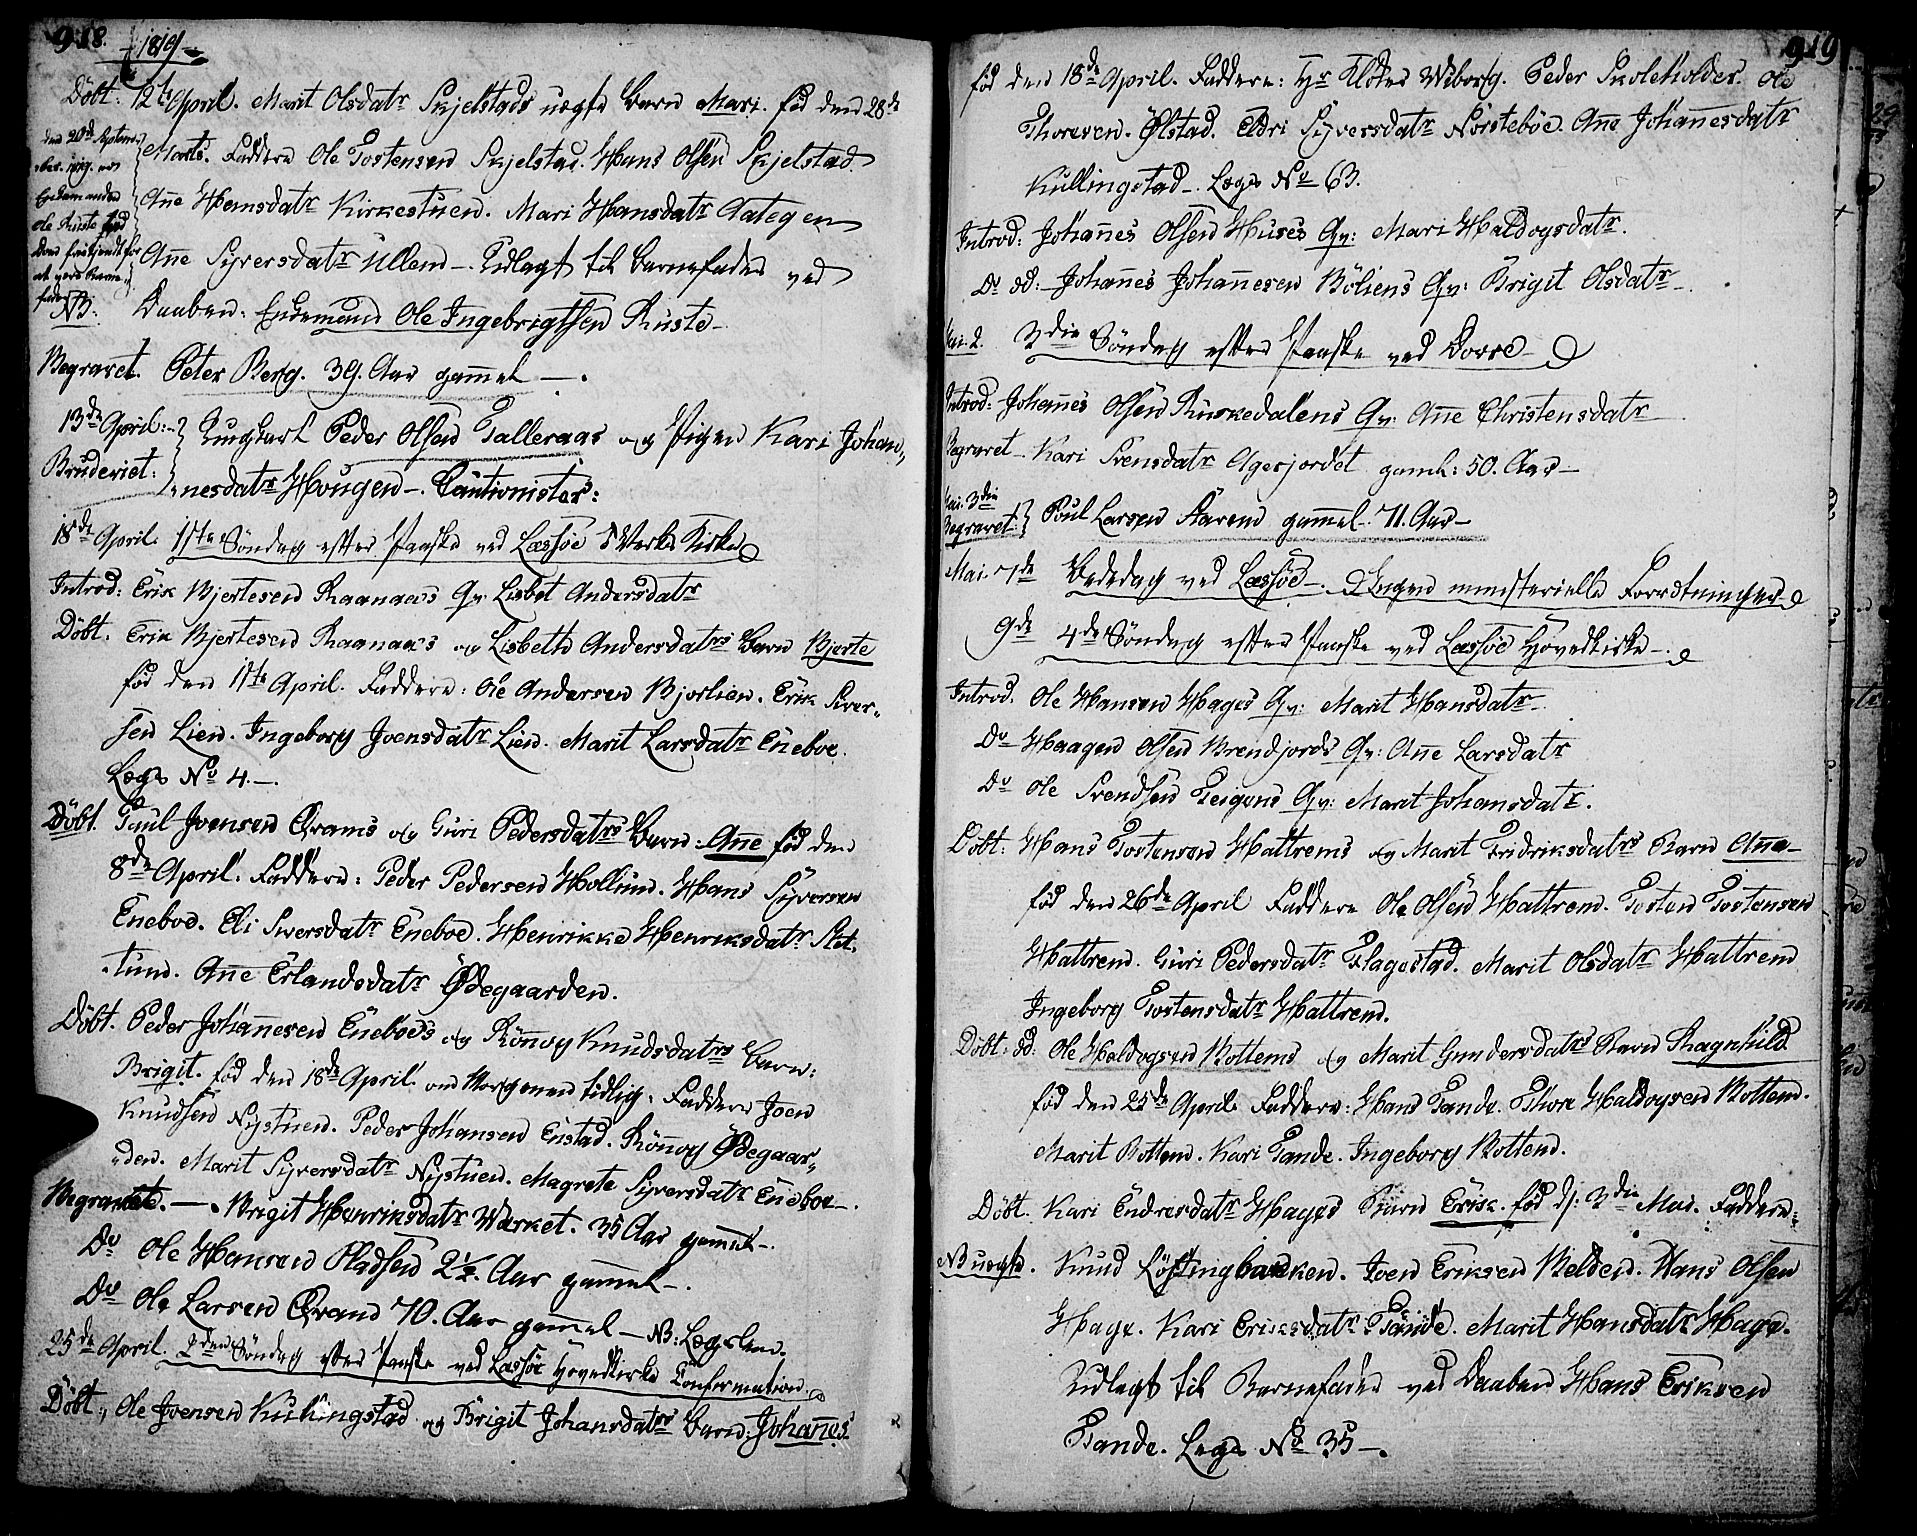 918. 1819
Döbt: 12te April. Marit Olsdatr Skjelstads uægte Barn Mari. fød den 28de
Marts. Faddere Ole Tostensen Skjelstad. Hans Olsen Skjelstad
Ane Hansdatr Kirkestuen. Mari Hansdatr
Ane Syversdatr Ullem-. Udlagt til Barnefader ved
Daaben: Enkemand Ole Ingebrigtsen Ruste-
den 20de Septem-
ber
Enkemanden
Ole Ruste
at være Barne-
fader
NB.
Begravet. Peter Berg. 39. Aar gammel -.
13de April:- Ungkarl Peder Olsen Talleraas og Pigen Kari Johan„
Brudeviet: „nesdatr Hougen-. Cautionister:
18de April. 1ste Söndag efter Paaske ved Læssöe Værks Kirke
Introd: Erik Bjertesen Raanaaes Qv: Lisbet Andersdatr
Döbt. Erik Bjertesen Raanaaes og Lisbeth Andersdatrs Barn Bjerte
fød den 11te April. Faddere: Ole Andersen Bjorlien. Erik Siver„
sen Lien. Ingeborg Joensdatr Lien. Marit Larsdatr Eneboe.
Lægs No 4.-.
Döbt. Paul Joensen Qvams og Guri Pedersdatrs Barn: Ane fød den
8de April. Faddere: Peder Pedersen Hollum. Hans Syversen
Eneboe. Eli Siversdatr Eneboe. Henrikke Henriksdatr Slet.
„tum. Ane Erlandsdatr Ödegaarden.
Döbt. Peder Johanesen Eneboes og Rönnog Knudsdatrs Barn:
Brigit. fød den 18de April om Morgenen tidlig. Faddere Joen
Knudsen Nystuen. Peder Johansen Enstad. Rönnog Ödegaar„
„den. Marit Syversdatr Nystuen. Magrete Syversdatr Eneboe-.
Begravede.-. Brigit Henriksdatr Værket. 35 Aar gammel-.
Do Ole Hansen Pladsen 2½. Aar gammel-.
Do Ole Larsen Qvam 70. Aar gammel - NB: Lægslem.
25de April. 2den Söndag efter Paaske ved Læssöe Hovedkirke Confirmation.
Döbt: Ole Joensen Kullingstad og Brigit Johansdatrs Barn: Johanes.
919
fød den 18de April. Faddere: Hr Klokker Wiborg. Peder Skoleholder. Ole
Thoresen. Ölstad. Eldri Syversdatr Norsteböe. Ane Johanesdatr
Kullingstad-. Lægs No 63.
Introd: Johanes Olsen Huses Qv: Mari Haldogsdatr.
Do Johanes Johanesen Böliens Qv: Brigit Olsdatr-.
Mai. 2. 3die Söndag efter Paaske ved Dovre-
Introd: Johanes Olsen Ruskedalens Qv: Ane Christensdatr
Begravet-. Kari Svensdatr Agesjordet gamel: 50. Aar-
Mai. 3die
Begravet } Poul Larsen gammel. 71. Aar-
Mai. 7de Bededag ved Læssöe-. Ingen ministerielle Forretninger
9de 4de Söndag efter Paaske ved Læssöe Hovedkirke-.
Introd. Ole Hansen Hages Qv: Marit Hansdatr-.
Do Haagen Olsen Brendjords Qv: Ane Larsdatr
Do Ole Svendsen Teigens Qv: Marit Johansdatr.
Döbt: Hans Tostensen Hattrems og Marit Fridriksdatrs Barn Ane-
fød den 26de April Faddere Ole Olsen Hattrem. Tosten Tostensen
Hattrem. Guri Pedersdatr Flagestad. Marit Olsdatr Hattrem
Ingeborg Tostensdatr Hattrem.
Döbt: Ole Haldogsen Bottems og Marit Gundersdatrs Barn Ragnhild
fød den 25de April. Faddere: Hans Tande. Thore Haldogsen Bottem.
Marit Bottem. Kari Tande. Ingeborg Bottem.
Döbt. Kari Endresdatr Hages Barn Erik. fød d: 3die Mai. Faddere:
NB uægte. Knud Löftingbakken. Joen Eriksen Melden. Hans Olsen
Hage. Kari Eriksdatr Tande. Marit Hansdatr Hage.
Udlagt til Barnefader ved Daaben Hans Eriksen
Tande. Lægs No 35-.